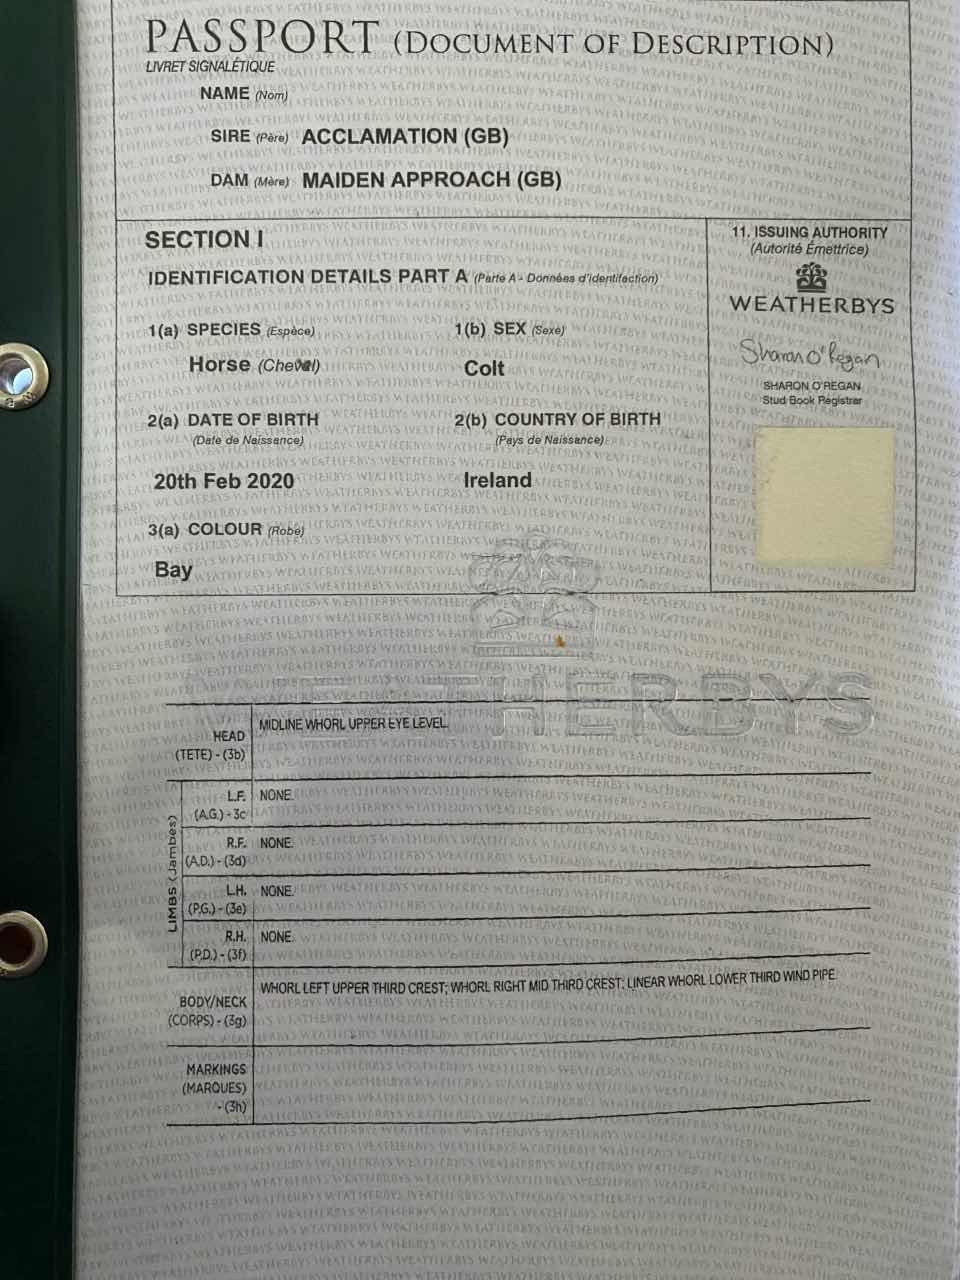 PASSPORT (DOCUMENT OF DESCRIPTION)
LIVRET SIGNALÉTIQUE
NAME (Nom)
SIRE (Père) ACCLAMATION (GB)
DAM (Mère) MAIDEN APPROACH (GB)
SECTION I
IDENTIFICATION DETAILS PART A (Parte A - Données d'identifaction)
1(a) SPECIES (Espèce)
Horse (Cheval)
1(b) SEX (Sexe)
Colt
2(a) DATE OF BIRTH
(Date de Naissance)
20th Feb 2020
2(b) COUNTRY OF BIRTH
(Pays de Naissance)
Ireland
3(a) COLOUR (Robe)
Bay
11. ISSUING AUTHORITY
(Autorité Émettrice)
WEATHERBYS
Sharon O'Regan
SHARON O'REGAN
Stud Book Registrar
WEATHERBYS
HEAD
(TETE) - (3b)
MIDLINE WHORL UPPER EYE LEVEL.
LIMBS (Jambes)
L.F.
(A.G.) - 3c
NONE.
R.F.
(A.D.) - (3d)
NONE.
L.H.
(P.G.) - (3e)
NONE.
R.H.
(P.D.) - (3f)
NONE.
BODY/NECK
(CORPS) - (3g)
WHORL LEFT UPPER THIRD CREST; WHORL RIGHT MID THIRD CREST; LINEAR WHORL LOWER THIRD WIND PIPE.
MARKINGS
(MARQUES)
- (3h)